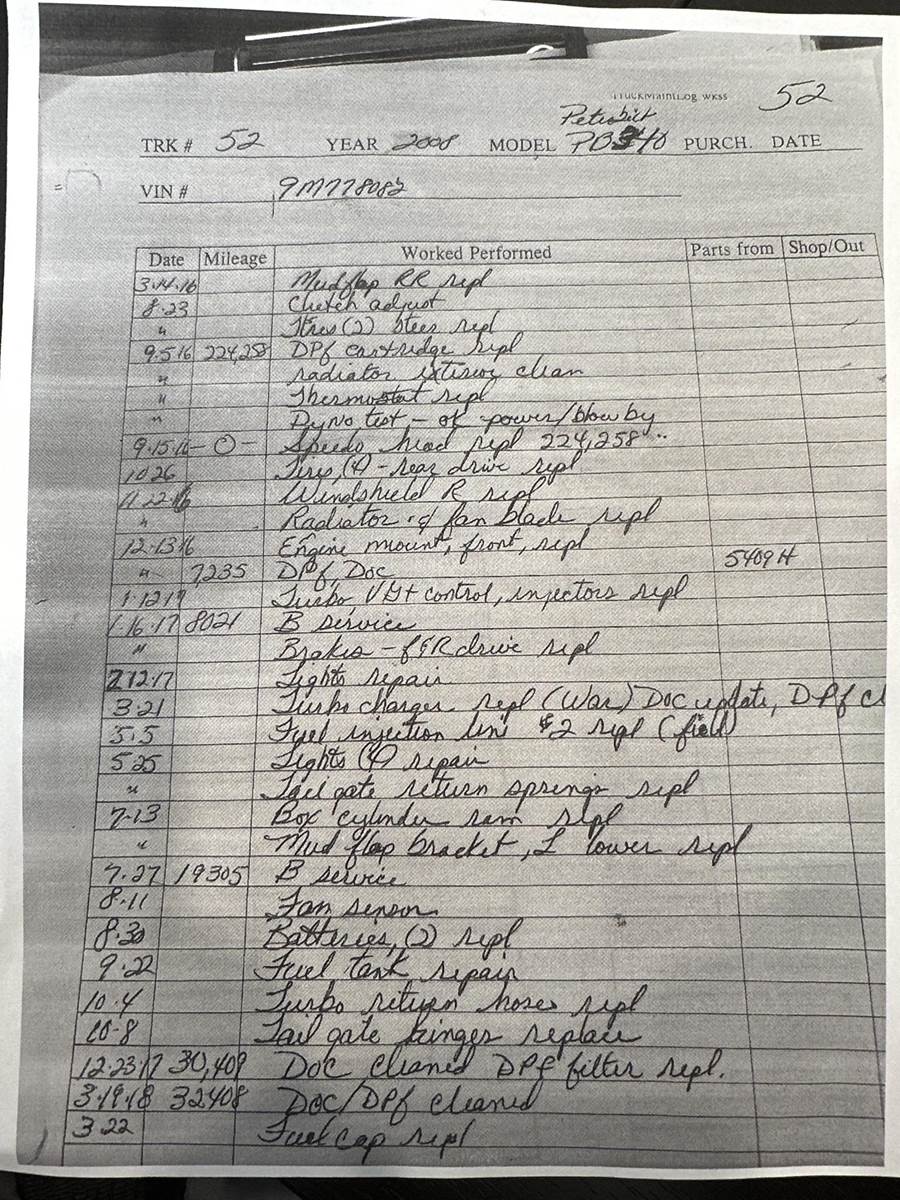 TruckMaintLog.WKSS 52
Peterbilt
TRK # 52 YEAR 2008 MODEL PB340 PURCH. DATE
VIN # 9M778082
Date Mileage Worked Performed Parts from Shop/Out
3.14.16 Mudflap RR repl
8.23 Clutch adjust
" Tires (2) steer repl
9.5.16 224,258 DPf cartridge repl
" radiator exterior clean
" Thermostat repl
" Dyno test - ok -power/blow by
9.15.16 -0- Speedo head repl 224,258
10 26 Tires, (4) - rear drive repl
11.22.16 Windshield R repl
" Radiator & fan blade repl
12.13.16 Engine mount, front, repl
" 7,235 DPf, Doc 5409H
1.12.17 Turbo, VGt control, injectors repl
1.16.17 8021 B service
" Brakes - f&R drive repl
2.12.17 Lights repair
3.21 Turbo charger repl (War) Doc update, DPf cl
5.5 Fuel injection line #2 repl (field)
5 25 Lights (4) repair
" Tail gate return springs repl
7.13 Box cylinder ram repl
" Mud flap bracket, L lower repl
7.27 19305 B service
8.11 Fan sensor
8.30 Batteries, (2) repl
9.22 Fuel tank repair
10.4 Turbo return hoses repl
10-8 Tail gate hinges replace
12.23.17 30,409 Doc cleaned DPF filter repl.
3.19.18 32408 Doc/DPf cleaned
3.22 Fuel cap repl